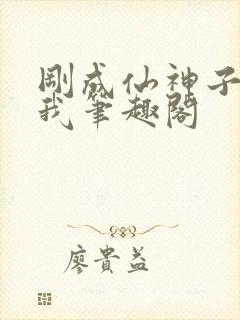 剛成仙神子
我筆趣閣
廖貴益